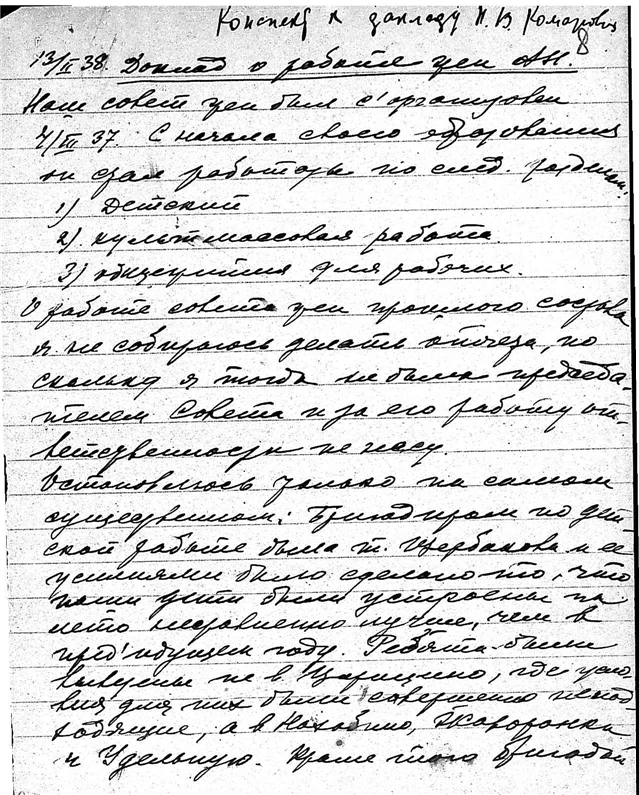 Конспект к докладу Н. В. Комарович
8
13/II 38. Доклад о работе жен АН.
Наш совет жен был с'организован
4/III 37. С начала своего образования
он стал работать по след. разделам:
1) Детский
2) культмассовая работа
3) общежития для рабочих.
О работе совета жен прошлого состава
я не собираюсь делать отчета, по
скольку я тогда не была председа-
телем Совета и за его работу от-
ветственности не несу.
Остановлюсь только на самом
существенном: Бригадиром по дет-
ской работе была т. Щербакова и ее
усилиями было сделано то, что
наши дети были устроены на
лето несравненно лучше, чем в
пред'идущем году. Ребята были
вывезены не в Царицыно, где усло-
вия для них были совершенно непод-
ходящие, а в Нахабино,
и Удельную. Кроме того бригадой